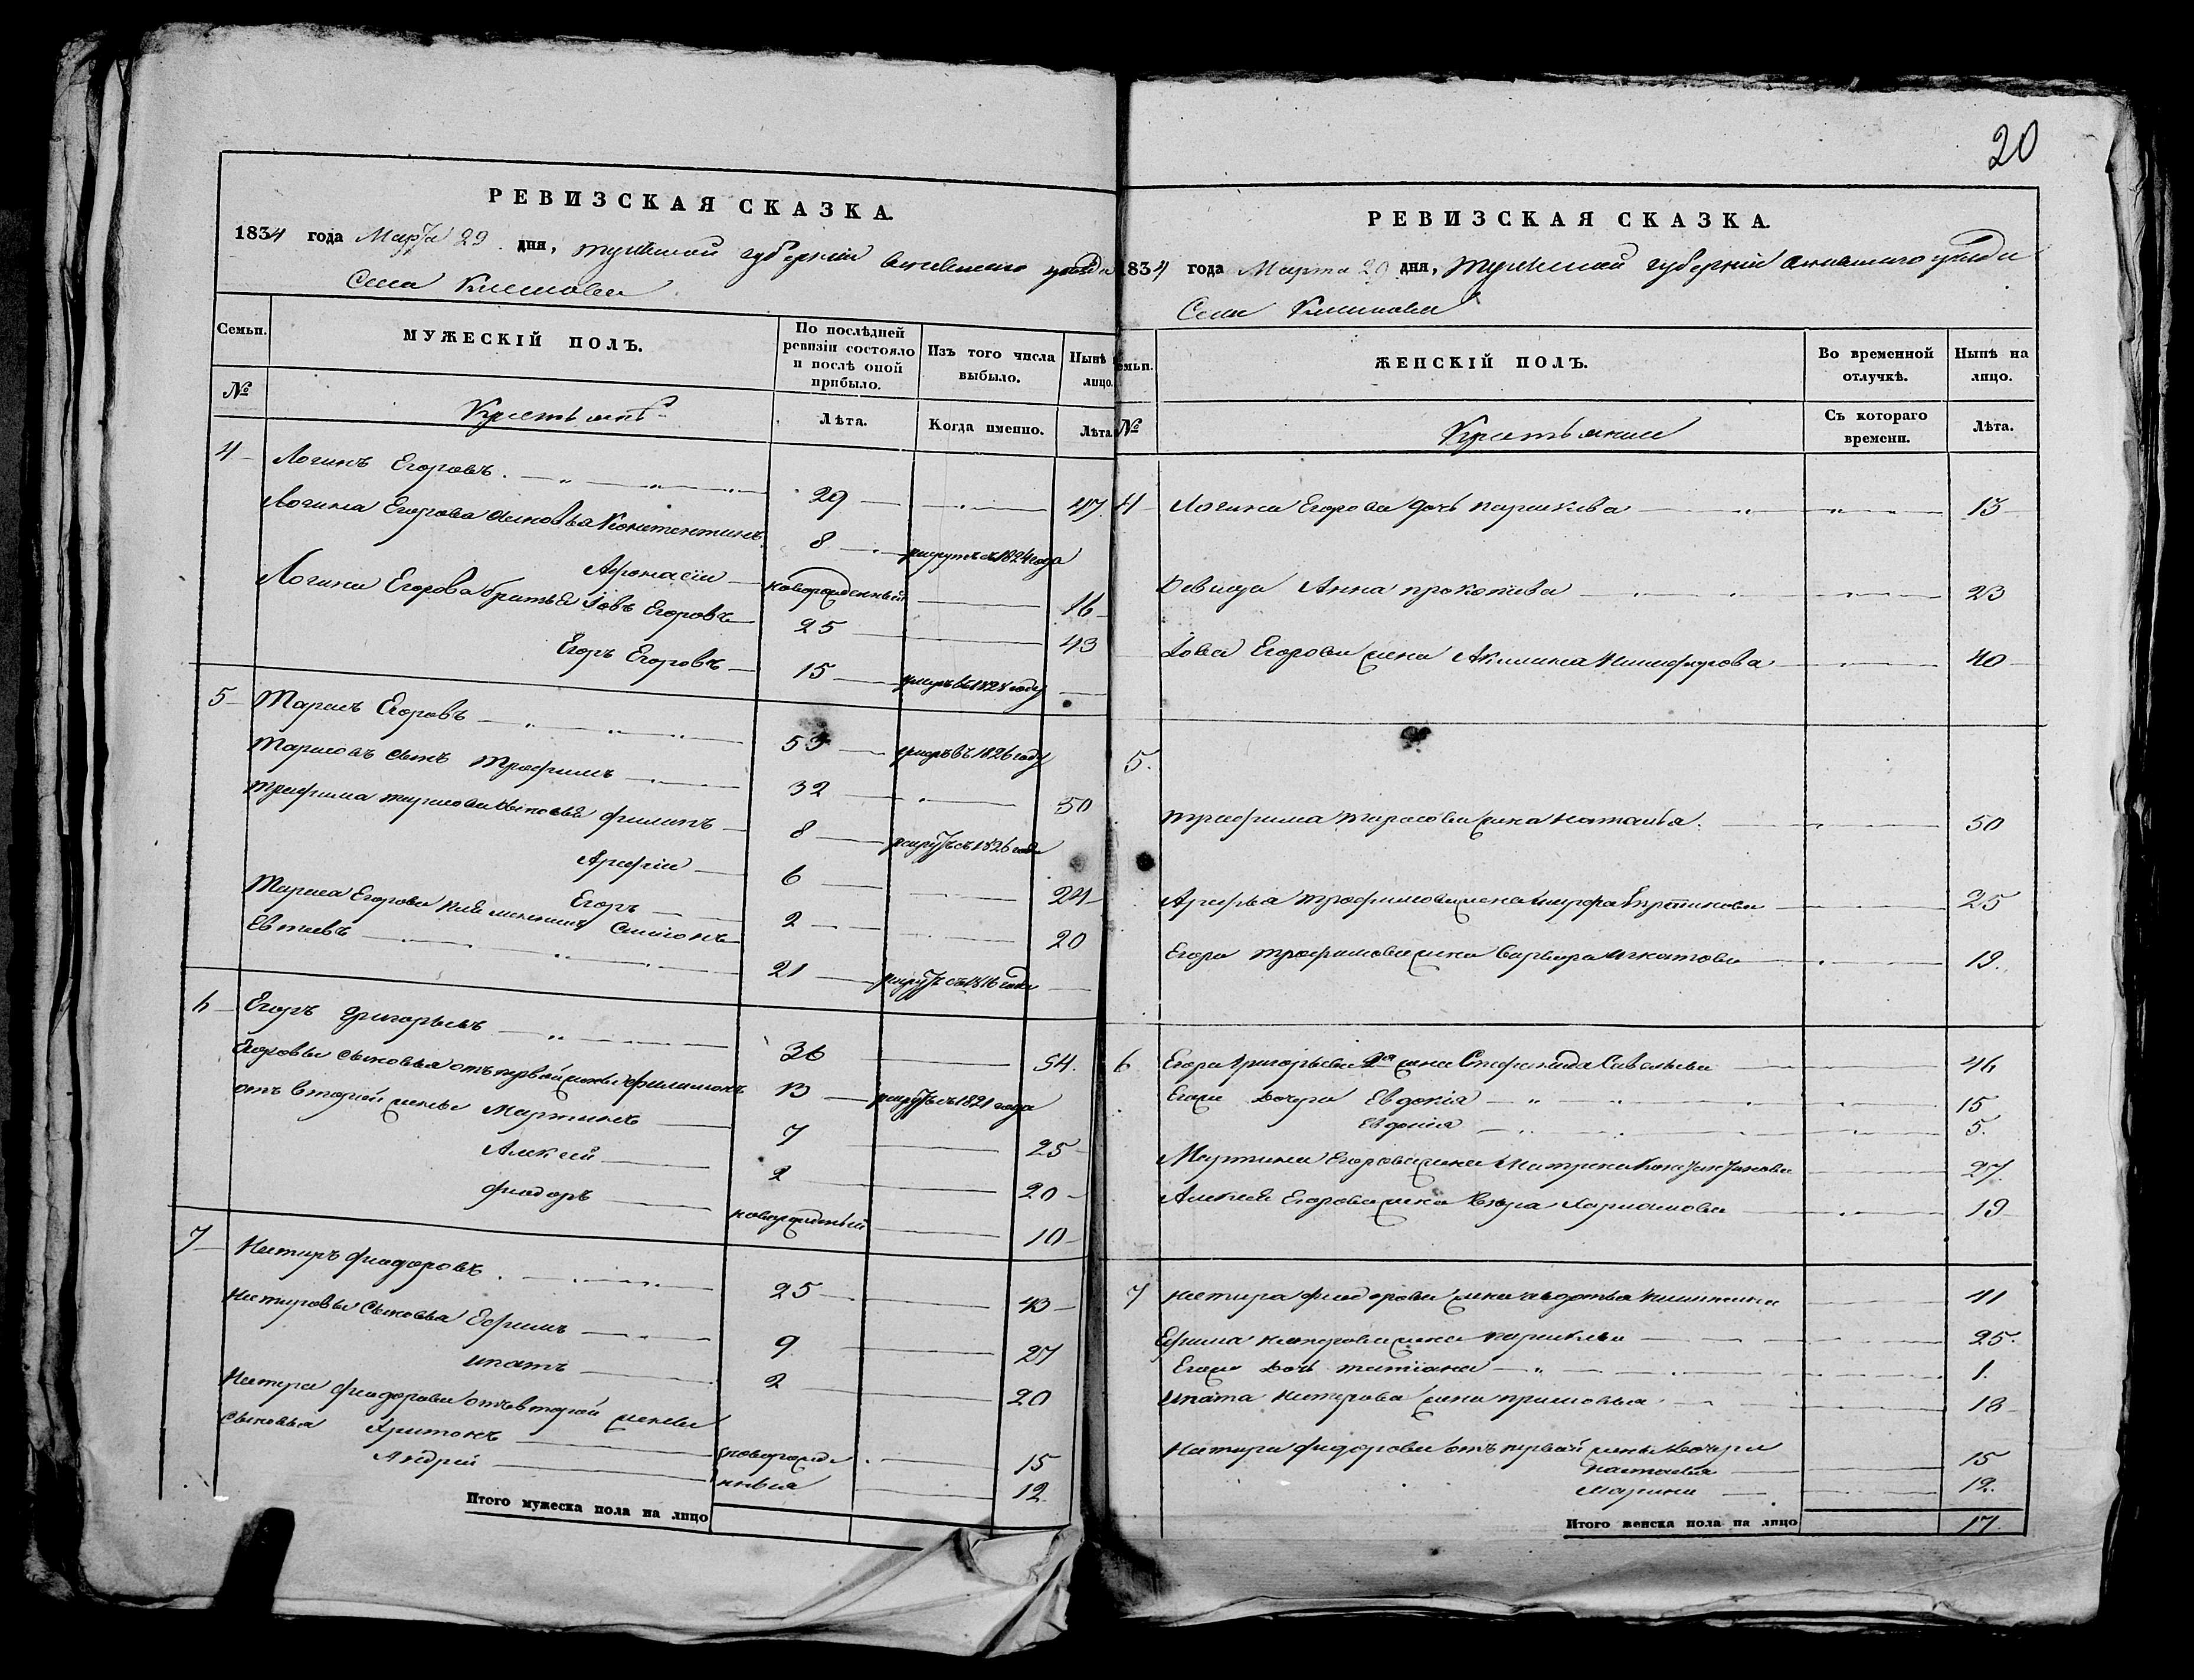 РЕВИЗСКАЯ СКАЗКА.
1834 года Марта 29 дня, Тульской губернии уезда
Села
Семьи. МУЖЕСКІЙ ПОЛЪ. По послѣдней ревизіи состояло и послѣ оной прибыло. Изъ того числа выбыло. Нынѣ лицо.
№ Лѣта. Когда именно. Лѣта
4 Логинъ Егоровъ. 29 47
Логина Егорова сыновья Констентинъ 8 рекрутъ съ 1824 года
Афонасіи новорожденный 16
Логина Егорова братья Iовъ Егоровъ 25 43
Егоръ Егоровъ 15 умеръ въ 1828 году
5 Тарасъ Егоровъ 55 умеръ въ 1826 году
Тарасовъ сынъ Трофимъ 32 50
Трофима Тарасова сыновья филипъ 8 рекрутъ съ 1826 года
Арефіи 6 24
Егоръ 2 20
Тараса Егорова племенникъ Симионъ
Евтеевъ 21 рекрутъ съ 1816 года
6 Егоръ Григорьевъ 36 54.
Егоровы сыновья отъ первой жены филимонъ 13 рекрутъ съ 1821 года
отъ второй жены Мартинъ 7 25
Алексей 2 20
фиодоръ новорожденный 10
7 Нестиръ фиодоровъ. 25 43
Нестировы Сыновья Ефимъ 9 27
ипатъ 2 20
Нестера фиодорова отъ второй жены
сыновья Харитонъ новорожде 15
Андрей нныя 12.
Итого мужеска пола на лицо
20
РЕВИЗСКАЯ СКАЗКА.
1834 года Марта 29 дня, Тульской губерніи уезда
Села
Семьи. ЖЕНСКІЙ ПОЛЪ. Во временной отлучкѣ. Нынѣ на лицо.
№ Съ котораго времени. Лѣта.
4 Логина Егорова дочь парасковья 13
Девица Анна прокопива 23
Iова Егорова жена Акилина Никифорова 40
5.
Трофима Тарасова жена наталья. 50
Арефья трофимова жена 25
Егора трофимова жена варвара игнатова 19.
6 Егора Григорьева 2я жена Стефанида Савельева 46
Егоже дочери Евдокія 15
5.
Мартина Егорова жена Матрена 27
Алексея Егорова жена Харламова 19
7 Нестира фиодорова жена авдотья никитина 41
Ефима нестерова жена 25.
Егоже дочь татіана 1.
ипата нестерова жена 18
Нестира фиодорова отъ первой жены дочери
настасья 15
марина 12.
Итого женска пола на лицо 17